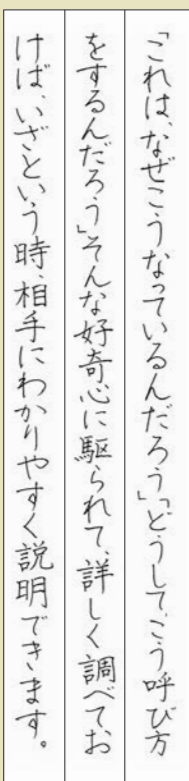 「これは、なぜこうなっているんだろう」「どうして、こう呼び方
をするんだろう」そんな好奇心に駆られて、詳しく調べてお
けば、いざという時、相手にわかりやすく説明できます。